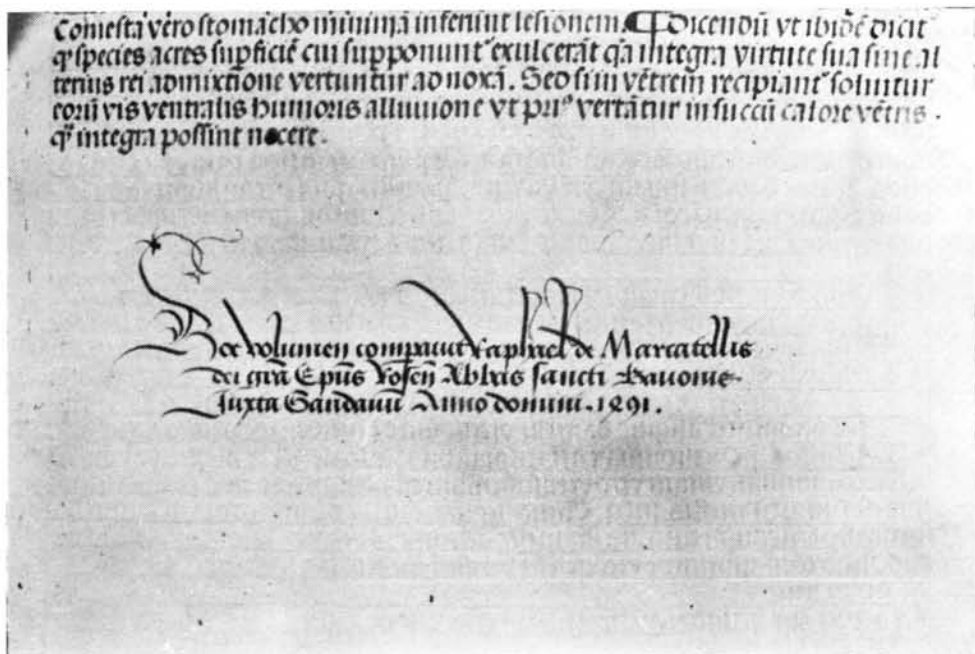 Comesta vero stomacho minimā inferunt lesionem. ¶ Dicendū vt ibidē dicit
q̄ species acres supficiē cui supponunt᷑ exulcerāt q̄a integra virtute sua sine al
terius rei admixtione vertuntur ad noxā. Sed si in vētrem recipiant᷑ soluitur
eorū vis ventralis humoris alluuione vt priꝰ vertātur in succū calore vētris
q̄ integra possint nocere.
Hoc volumen comparuit Raphael de Marcatellis
dei grā Epūs Rosen̄ Abbas sancti Bauonis
Juxta Gandauū Anno domini. 1491.